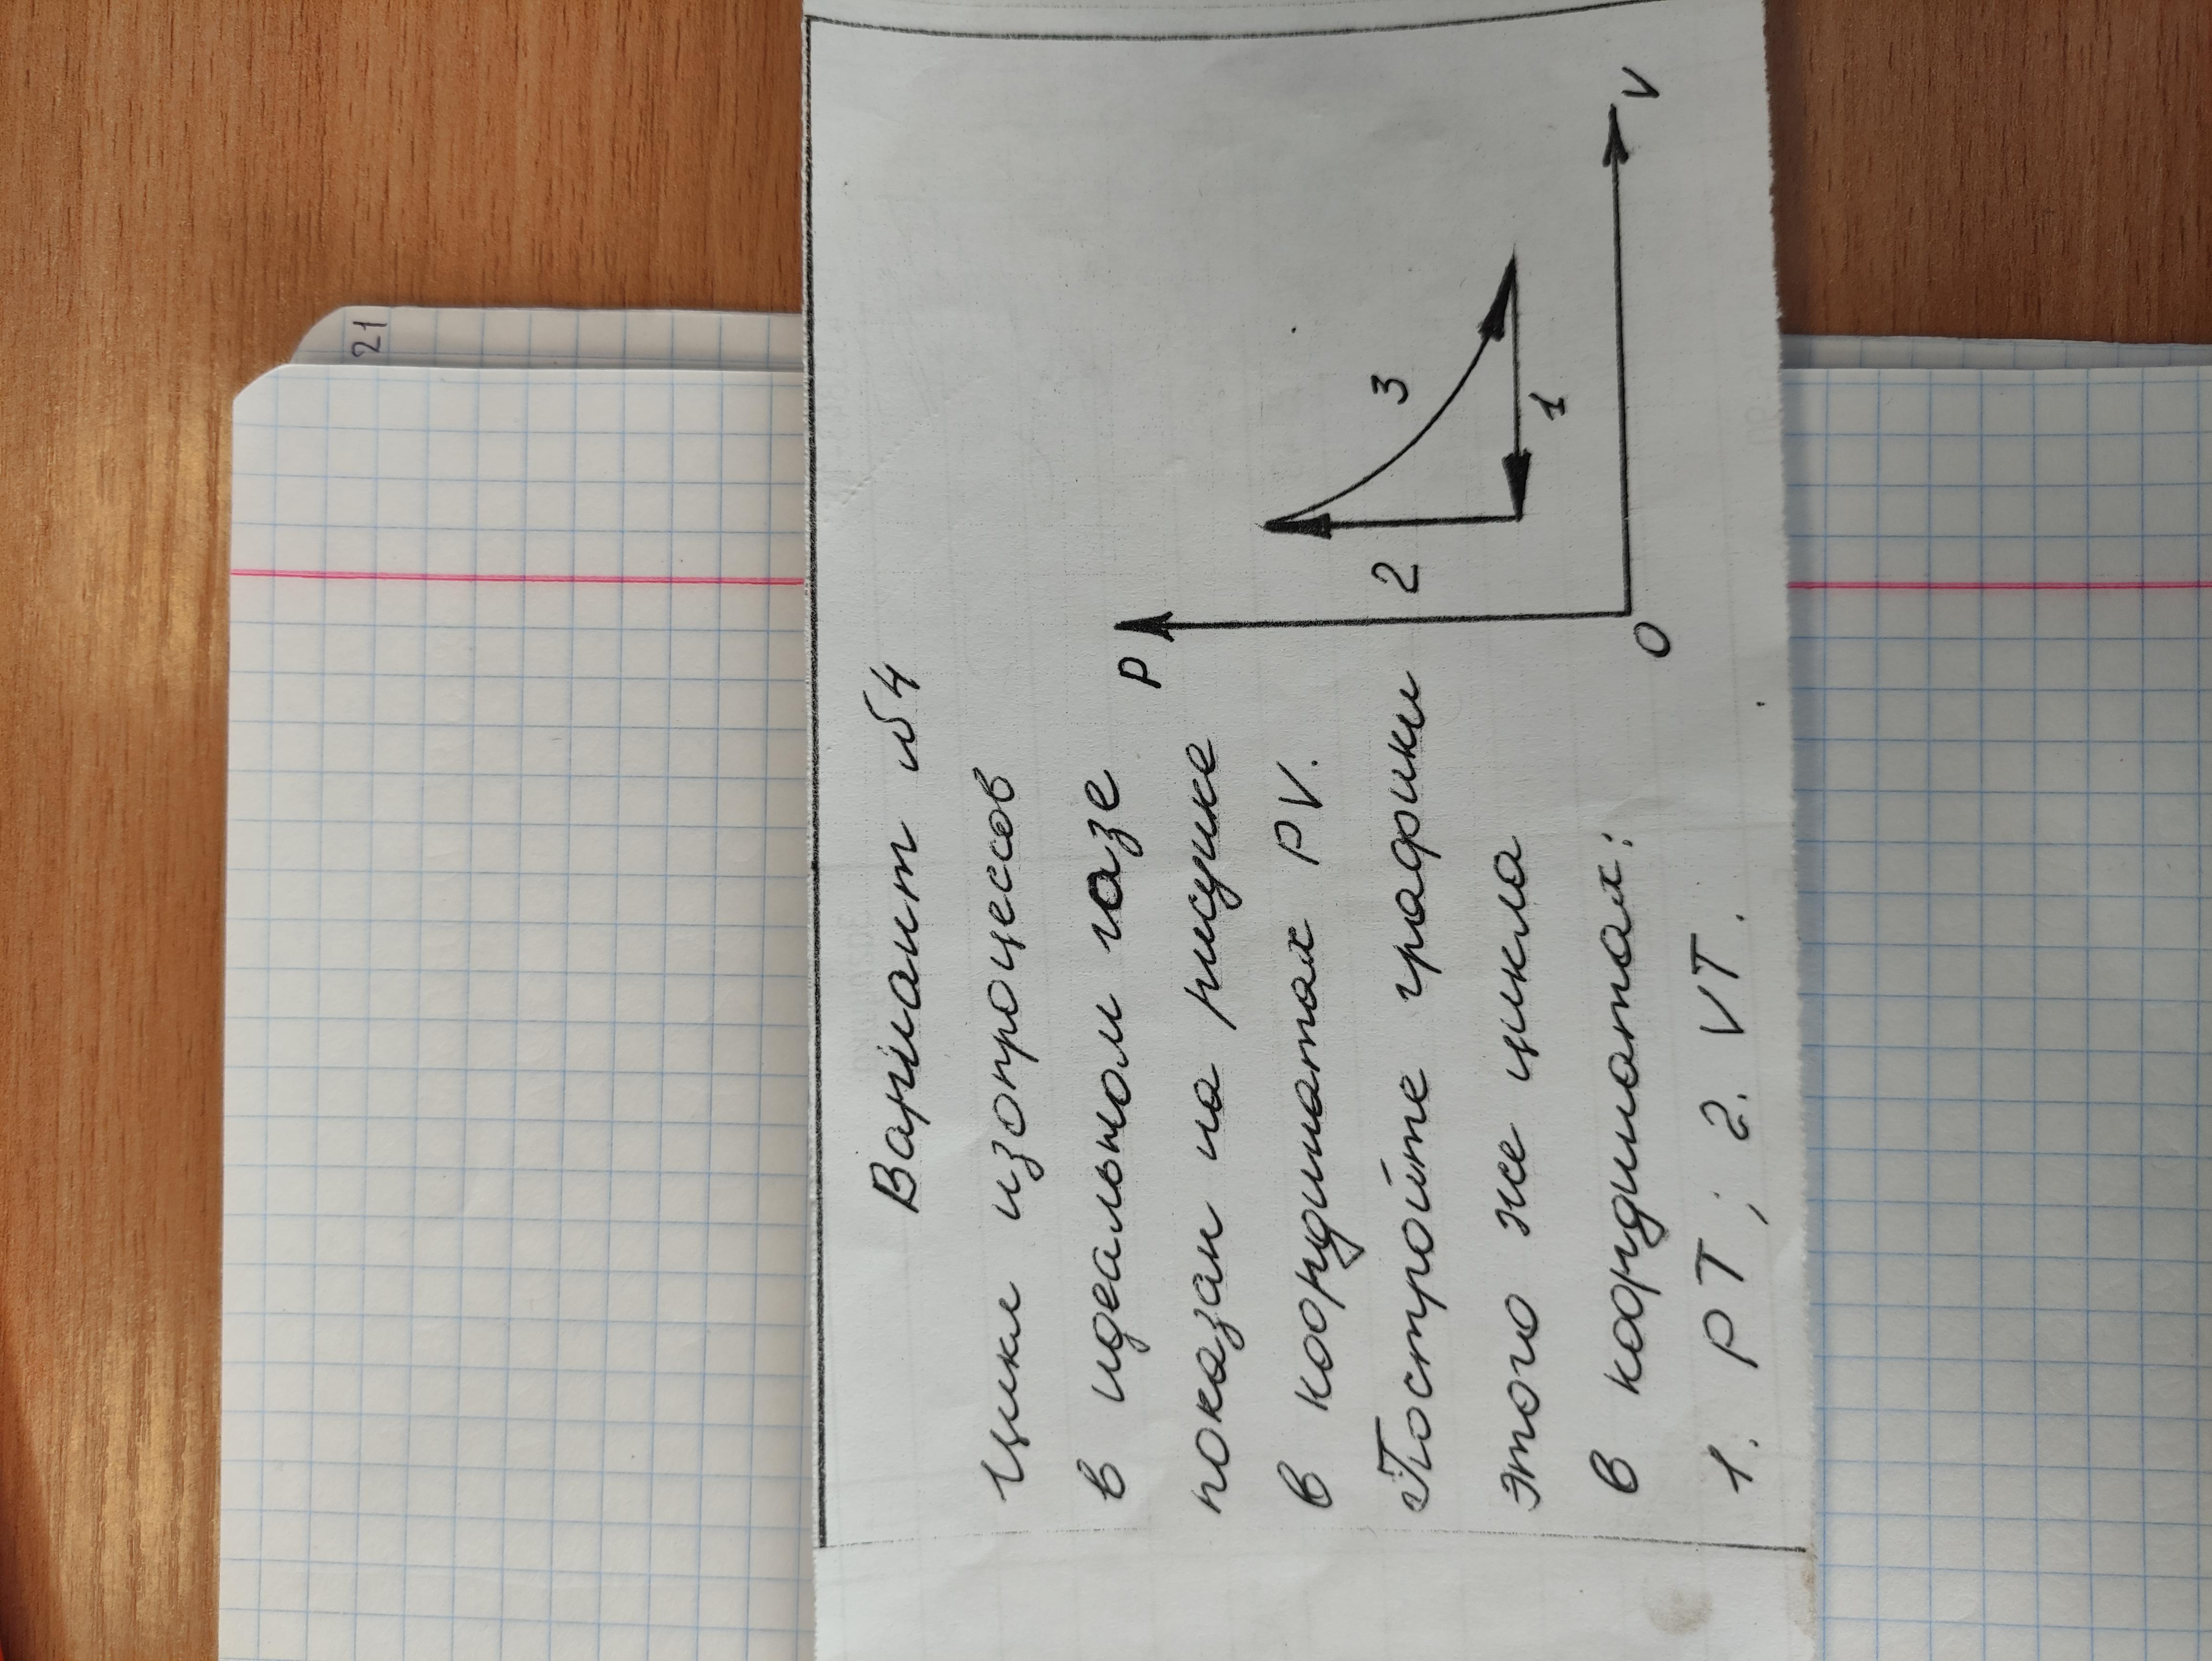 Вариант №4
Цикл изопроцессов
в идеальном газе
показан на рисунке
в координатах PV.
Постройте графики
этого же цикла
в координатах:
1. PT; 2. VT.
P
2
3
1
O
V
21